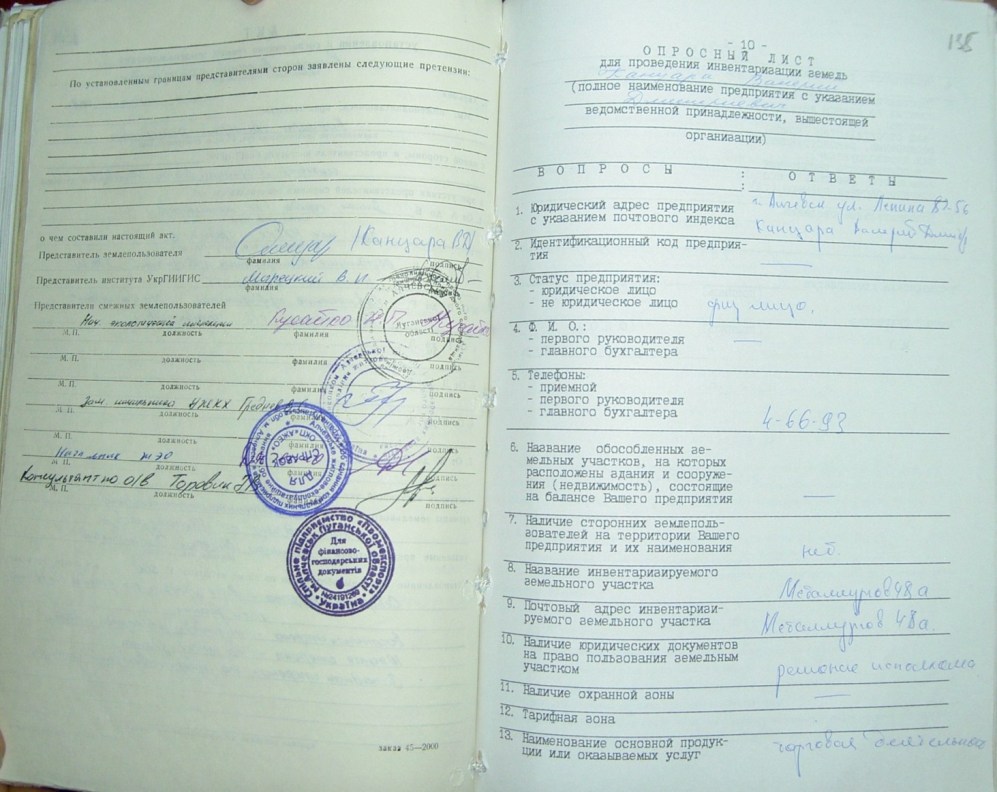 По установленным границам представителями сторон заявлены следующие претензии:
о чем составили настоящий акт.
Представитель землепользователя /Канцара ВД/
фамилия подпись
Представитель института УкрГИИГИС Марецкий В. И.
фамилия подпись
Представители смежных землепользователей
Нач. экологической инспекции
М. П. должность фамилия подпись
М. П. должность фамилия подпись
Зам. начальника
М. П. должность фамилия подпись
М. П. должность фамилия подпись
Начальник ЖЭО
М. П. должность фамилия подпись
Консультант по о/в
М. П. должность подпись
Луганської області
ДЛЯ СПРАВОК
Спільне підприємство
м. Алчевськ Луганської області
Для фінансово-господарських документів
№24191269
Україна
заказ 45—2000
135
- 10 -
ОПРОСНЫЙ ЛИСТ
для проведения инвентаризации земель
Канцара Валерий
(полное наименование предприятия с указанием
Дмитриевич
ведомственной принадлежности, вышестоящей
организации)
ВОПРОСЫ : ОТВЕТЫ
1. Юридический адрес предприятия г. Алчевск ул. Ленина 82-56
с указанием почтового индекса Канцара Валерий
2. Идентификационный код предприя-
тия —
3. Статус предприятия:
- юридическое лицо
- не юридическое лицо физ лицо.
4. Ф. И. О.:
- первого руководителя —
- главного бухгалтера
5. Телефоны:
- приемной
- первого руководителя
- главного бухгалтера 4-66-93
6. Название обособленных зе-
мельных участков, на которых
расположены здания и сооруже-
ния (недвижимость), состоящие
на балансе Вашего предприятия —
7. Наличие сторонних землеполь-
зователей на территории Вашего
предприятия и их наименования нет.
8. Название инвентаризируемого
земельного участка Металлургов 48а
9. Почтовый адрес инвентаризи-
руемого земельного участка Металлургов 48а.
10. Наличие юридических документов
на право пользования земельным
участком решение исполкома
11. Наличие охранной зоны —
12. Тарифная зона
13. Наименование основной продук-
ции или оказываемых услуг торговая деятельность